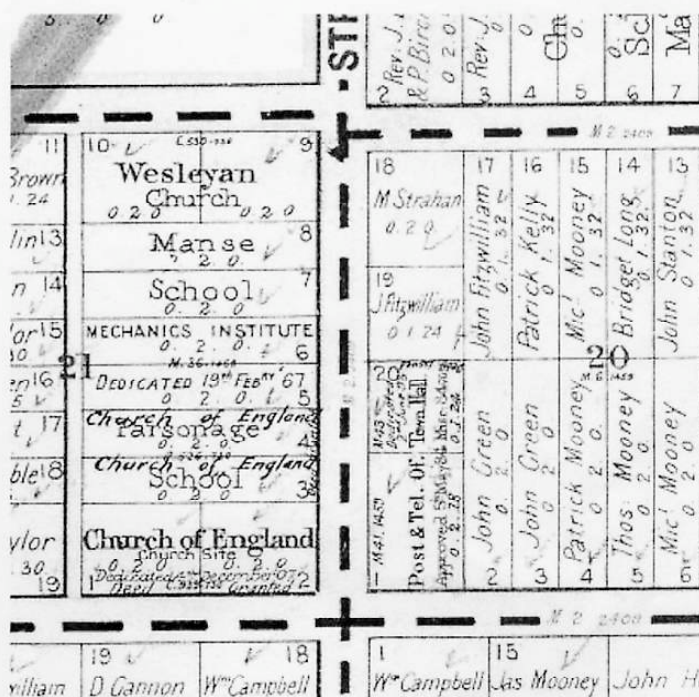 0 0
STR
Rev. J.
& P. Birc
0 2 0
2
Rev. J.
3
Ch
4
5
Scl
6
Ma
7
M 2 2409
11
Brown
1. 24
lin 13
n 14
lor 15
30
en 16
5
t 17
ble 18
ylor
. 30
19
21
10
C.530-730
9
Wesleyan
Church
0. 2 0
0. 2 0
Manse 8
0 2. 0.
School 7
0. 2 0
MECHANICS INSTITUTE
0. 2. 0. 6
M. 36.1459
DEDICATED 19th FEBRY. 67
0. 2. 0. 5
Church of England
Parsonage
0. 2. 0 4
Church of England
School
0 2 0 3
Church of England
Church Site
0 2 0 0. 2 0
1 2
Deed Granted
18
M Strahan
0. 2 0.
19
J Fitzwilliam
0. 1. 24
20
Town Hall
0. 1. 24
M41.1459
Post & Tel. Of.
0. 2. 28
1
17
John Fitzwilliam
0. 1. 32
16
Patrick Kelly
0 1. 32
15
Micl Mooney
0 1. 32
14
Bridget Long
0. 1. 32
13
John Stanton
0. 1. 32
20
M 6 1459
John Green
0. 2 0
2
John Green
0 2 0
3
Patrick Mooney
0 2 0.
4
Thos Mooney
0 2 0
5
Micl Mooney
0 2 0
6
M 2 2409
M 2 2409
william
19
D Gannon
18
Wm Campbell
1
Wm Campbell
15
Jas Mooney
John H